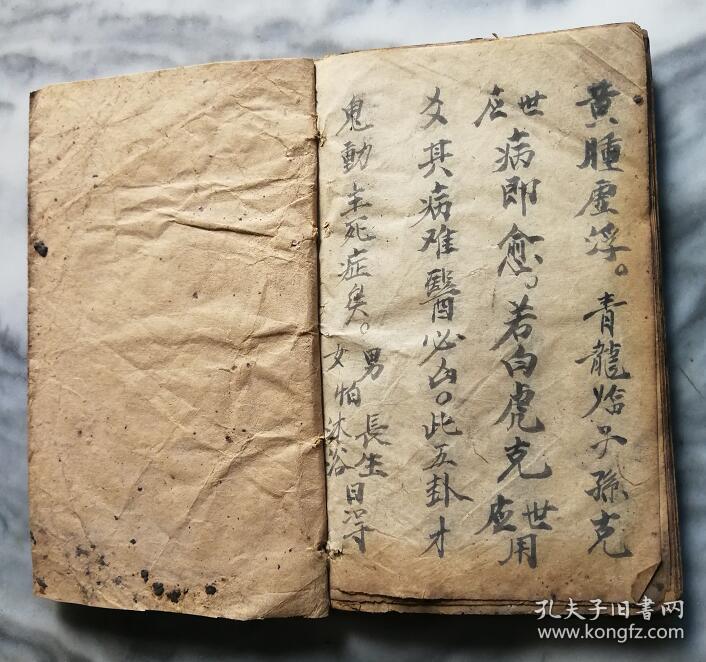 黄腫虚浮。青龍临子孫克
世应病即愈。若白虎克世应用
爻其病难醫必凶。此五卦才
鬼動主死症矣。男女怕長生沐浴日
孔夫子旧書网
www.kongfz.com